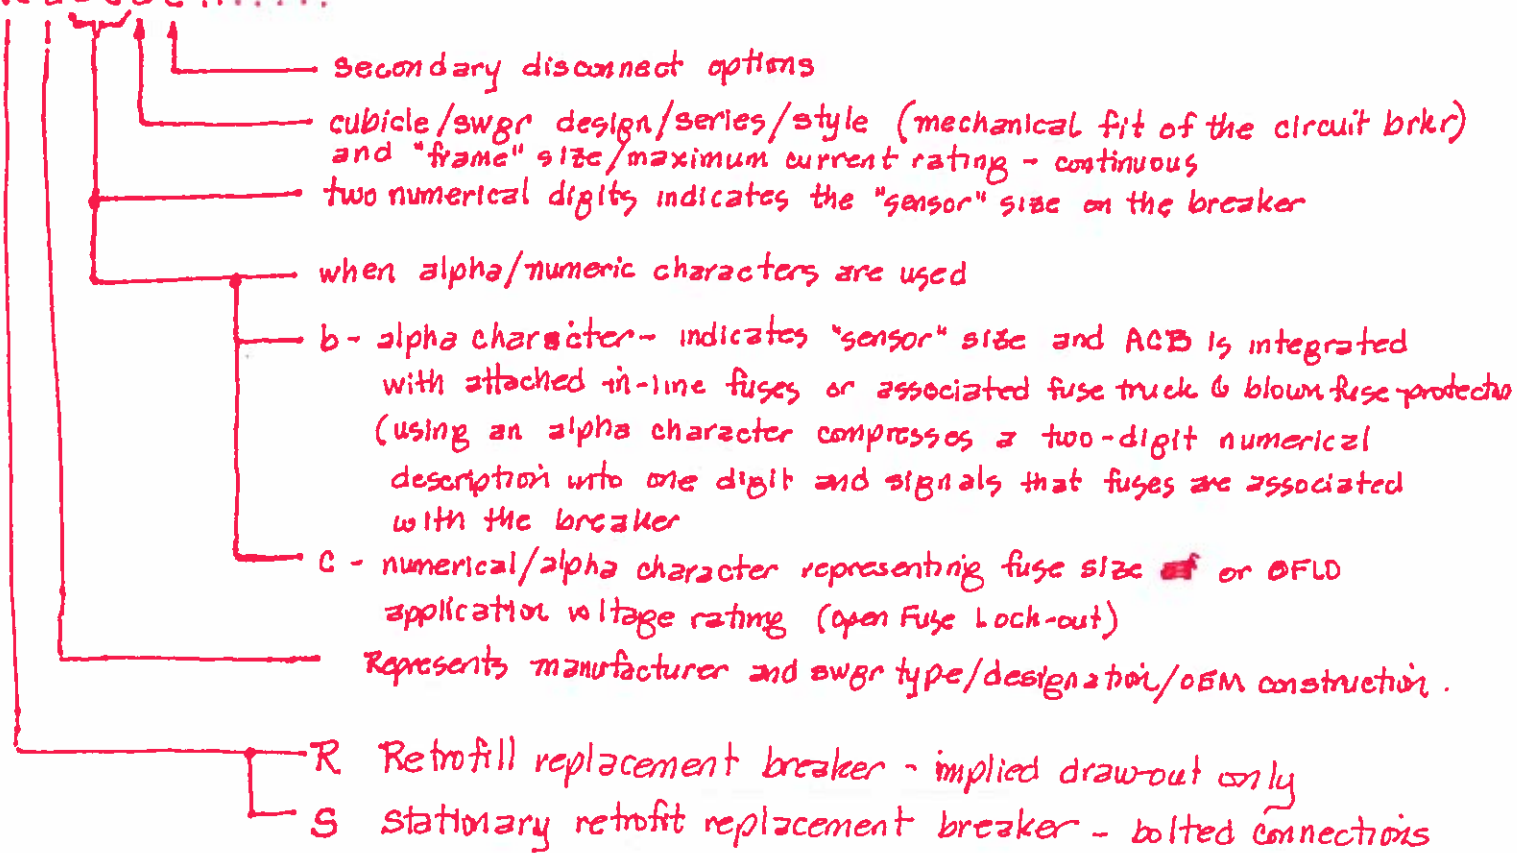 secondary disconnect options
cubicle/swgr design/series/style (mechanical fit of the circuit brkr)
and "frame" size/maximum current rating - continuous
two numerical digits indicates the "sensor" size on the breaker
when alpha/numeric characters are used
b - alpha character - indicates "sensor" size and ACB is integrated
with attached in-line fuses or associated fuse truck & blown fuse protectio
(using an alpha character compresses a two-digit numerical
description into one digit and signals that fuses are associated
with the breaker
C - numerical/alpha character representing fuse size or OFLO
application voltage rating (Open Fuse Lock-out)
Represents manufacturer and swgr type/designation/OEM construction.
R Retrofill replacement breaker - implied draw-out only
S Stationary retrofit replacement breaker - bolted connections